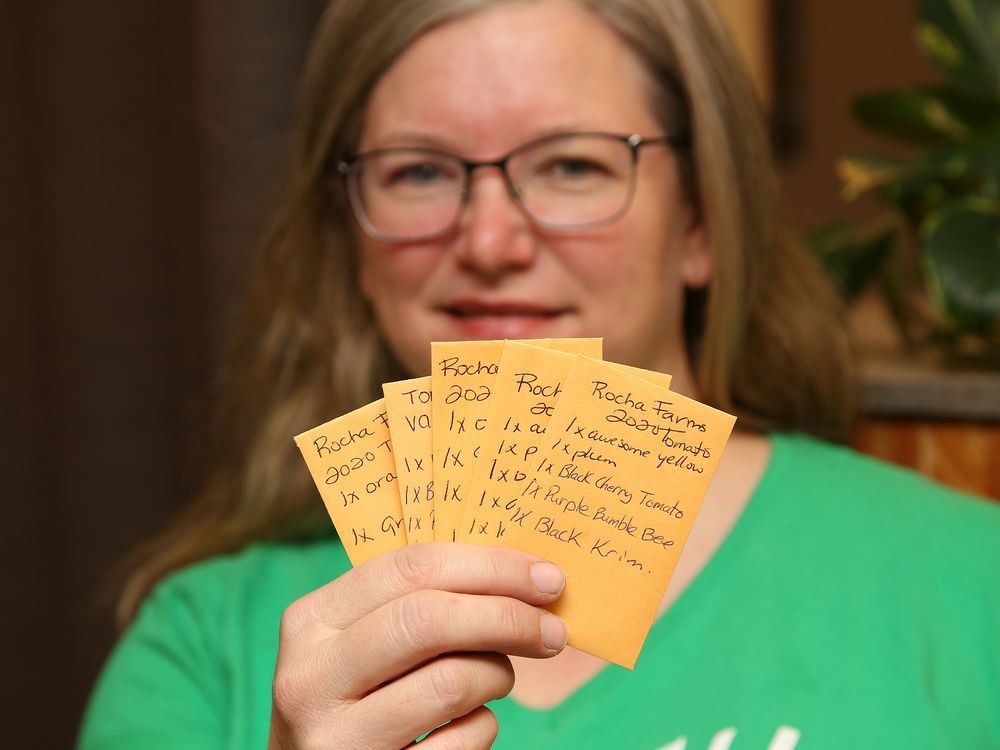 Rocha F
2020 T
1x ora
1x Gr
To
va
1x
1x B
1x
Rocha
202
1x
1x
1x
Roch
20
1x a
1x p
1x
1x
1x
Rocha Farms
2020 Tomato
1x awesome yellow
1x plum
1x Black Cherry Tomato
1x Purple Bumble Bee
1x Black Krim.